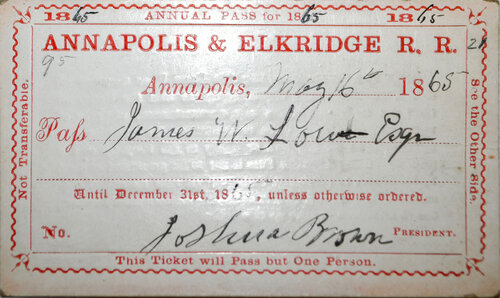 1865 ANNUAL PASS for 1865 1865
ANNAPOLIS & ELKRIDGE R. R.
95
Annapolis, May 16th 1865
Pass James W. Low Esqr
Until December 31st, 1865, unless otherwise ordered.
No. Joshua Brown PRESIDENT.
This Ticket will Pass but One Person.
Not Transferable.
See the Other Side.